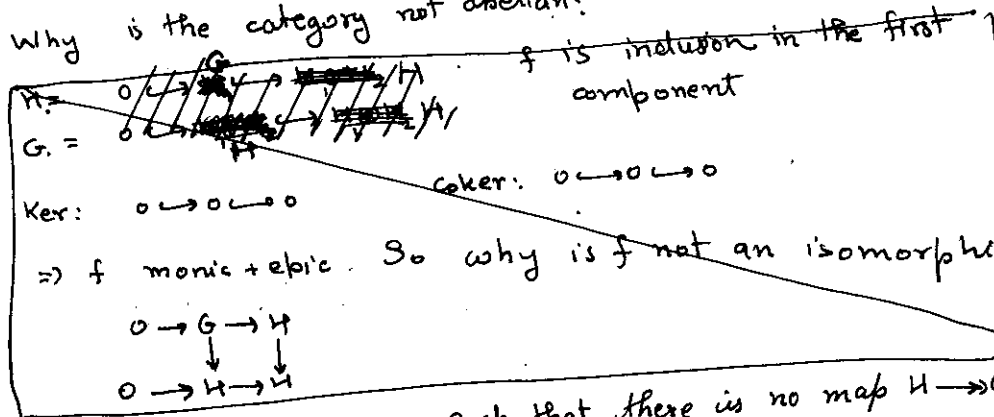 Why is the category not abelian?
H. = 0 ↪ G ↪ H f is inclusion in the first
component
G. = 0 ↪ H ↪ H
Ker: 0 ↪ 0 ↪ 0 Coker: 0 ↪ 0 ↪ 0
⇒ f monic + epic. So why is f not an isomorphi
0 → G → H
↓ ↓
0 → H → H
such that there is no map H ↠